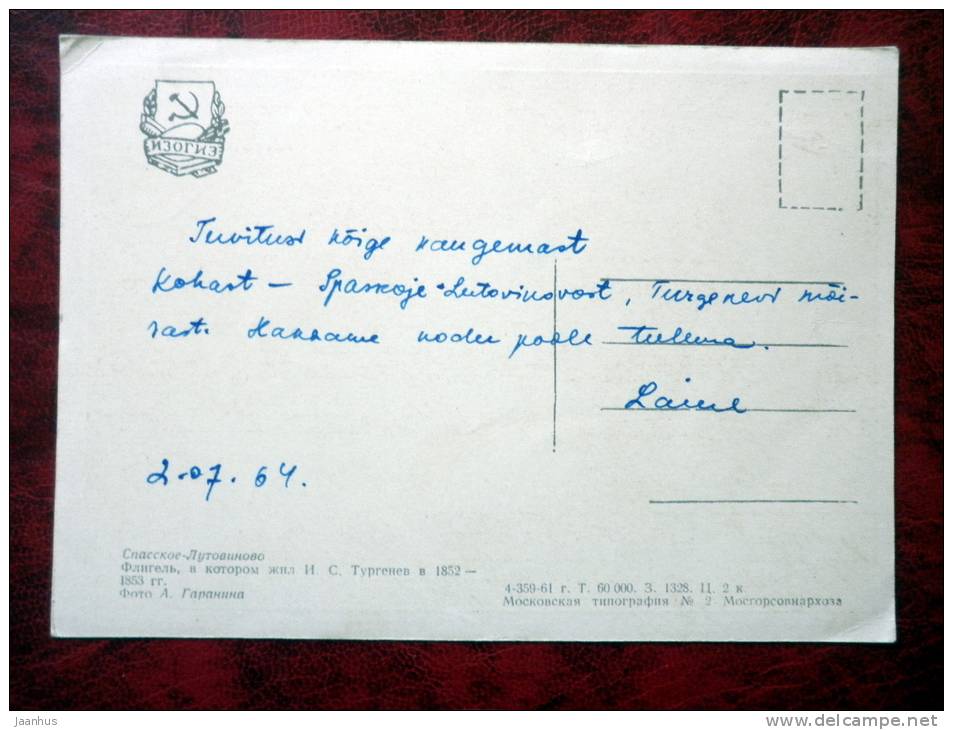 ИЗОГИЗ
Tervitusi kõige kaugemast
kohast — Spasskoje-Lutovinovost, Turgenevi mõi-
sast. Hakkame kodu poole tulema.
Laine
2.07.64.
Спасское-Лутовиново
Флигель, в котором жил И. С. Тургенев в 1852 —
1853 гг.
Фото А. Гаранина
4-359-61 г. Т. 60 000. З. 1328. Ц. 2 к
Московская типография № 2 Мосгорсовнархоза
Jaanhus
www.delcampe.net